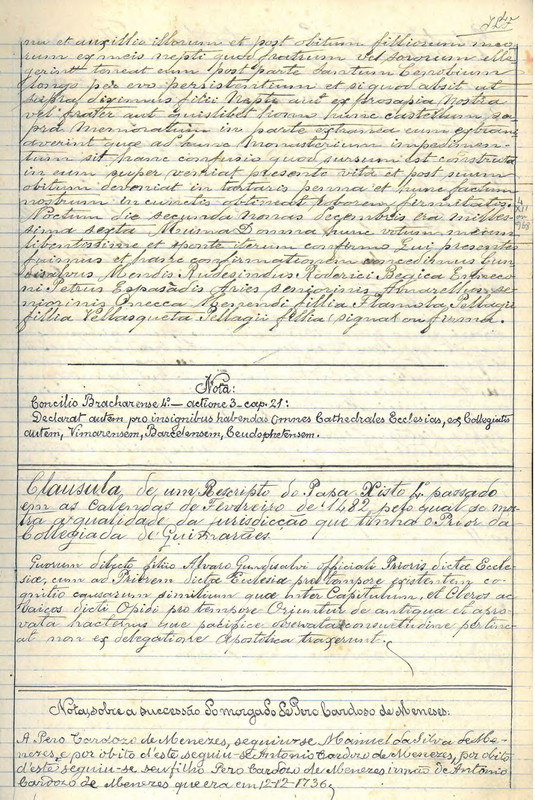 na et auxillio illorum et post obitum filliorum meo
rum ex meis nepti quod fratrum vel sororum elle
gerint teneat eum post parte santum Cenobium
longo per evo persistantium et si quod absit ut
supra diximus filii neptis aut ex prosapia nostra
vel frater aut quislibet homo hunc castellum su
pra memoratum in parte extranea eum extrane
averint que ad hunc monasterium impedimen-
tum sit hanc confusio quod sursum est construta
in eum super veniat presente vita et post suum
obitum deveniat in tartaris penna et hunc factum
nostrum in cunctis obtineat roborem firmitatis.
Noctum die secunda nonas decembris era mille-
sima sexta Mumadomna hunc votum meum
libentissime et sponte iterum confirmo Qui presentes
fuimus et hanc confirmationem concedimus Gun
disalvus Mendis Rudesindus Roderici Begica Enneco
ni Petrus
Onecca Menendi fillia Flamula Pellagii
fillia Vellasqueta Pellagii fillia (signal ou firma.
Nota:
Concilio Bracharense 4º — actione 3 – cap. 21:
Declarat autem pro insignibus habendas omnes Cathedrales Ecclesias, eas Collegiatis
autem, Vimarensem, Barcelensem, Ceudophetensem.
Clausula, de um Rescripto do Papa Xisto 4º passado
em as calendas de Fevreiro de 1482, pelo qual se mos
tra a qualidade da jurisdicção que tinha o Prior da
Collegiada de Guimarães.
Quorum dilecto filio Alvaro Gundisalvi officiali Prioris dictæ Eccle-
siæ, cum ad Priorem dictæ Ecclesiæ pro tempore existentem co-
gnitio causarum similium quæ inter Capitulum, et Cleros ac
Laicos dicti Opidi pro tempore Orjuntur de antiqua et apro-
vata hactenus que pacifice observata consuetudine pertine-
at non ex delegatione Apostolica traxerunt.
Nota, sobre a successão do morgado de Pero Cardoso de Meneses:
A Pero Cardozo de Menezes, seguiu-se Manuel da Silva de Me-
nezes, e por obito d'este seguiu-se Antonio Cardozo de Menezes, por obito
d'este seguiu-se, seu filho Pero Cardozo de Menezes irmão de Antonio
Cardozo de Menezes que era em 12-12-1736.